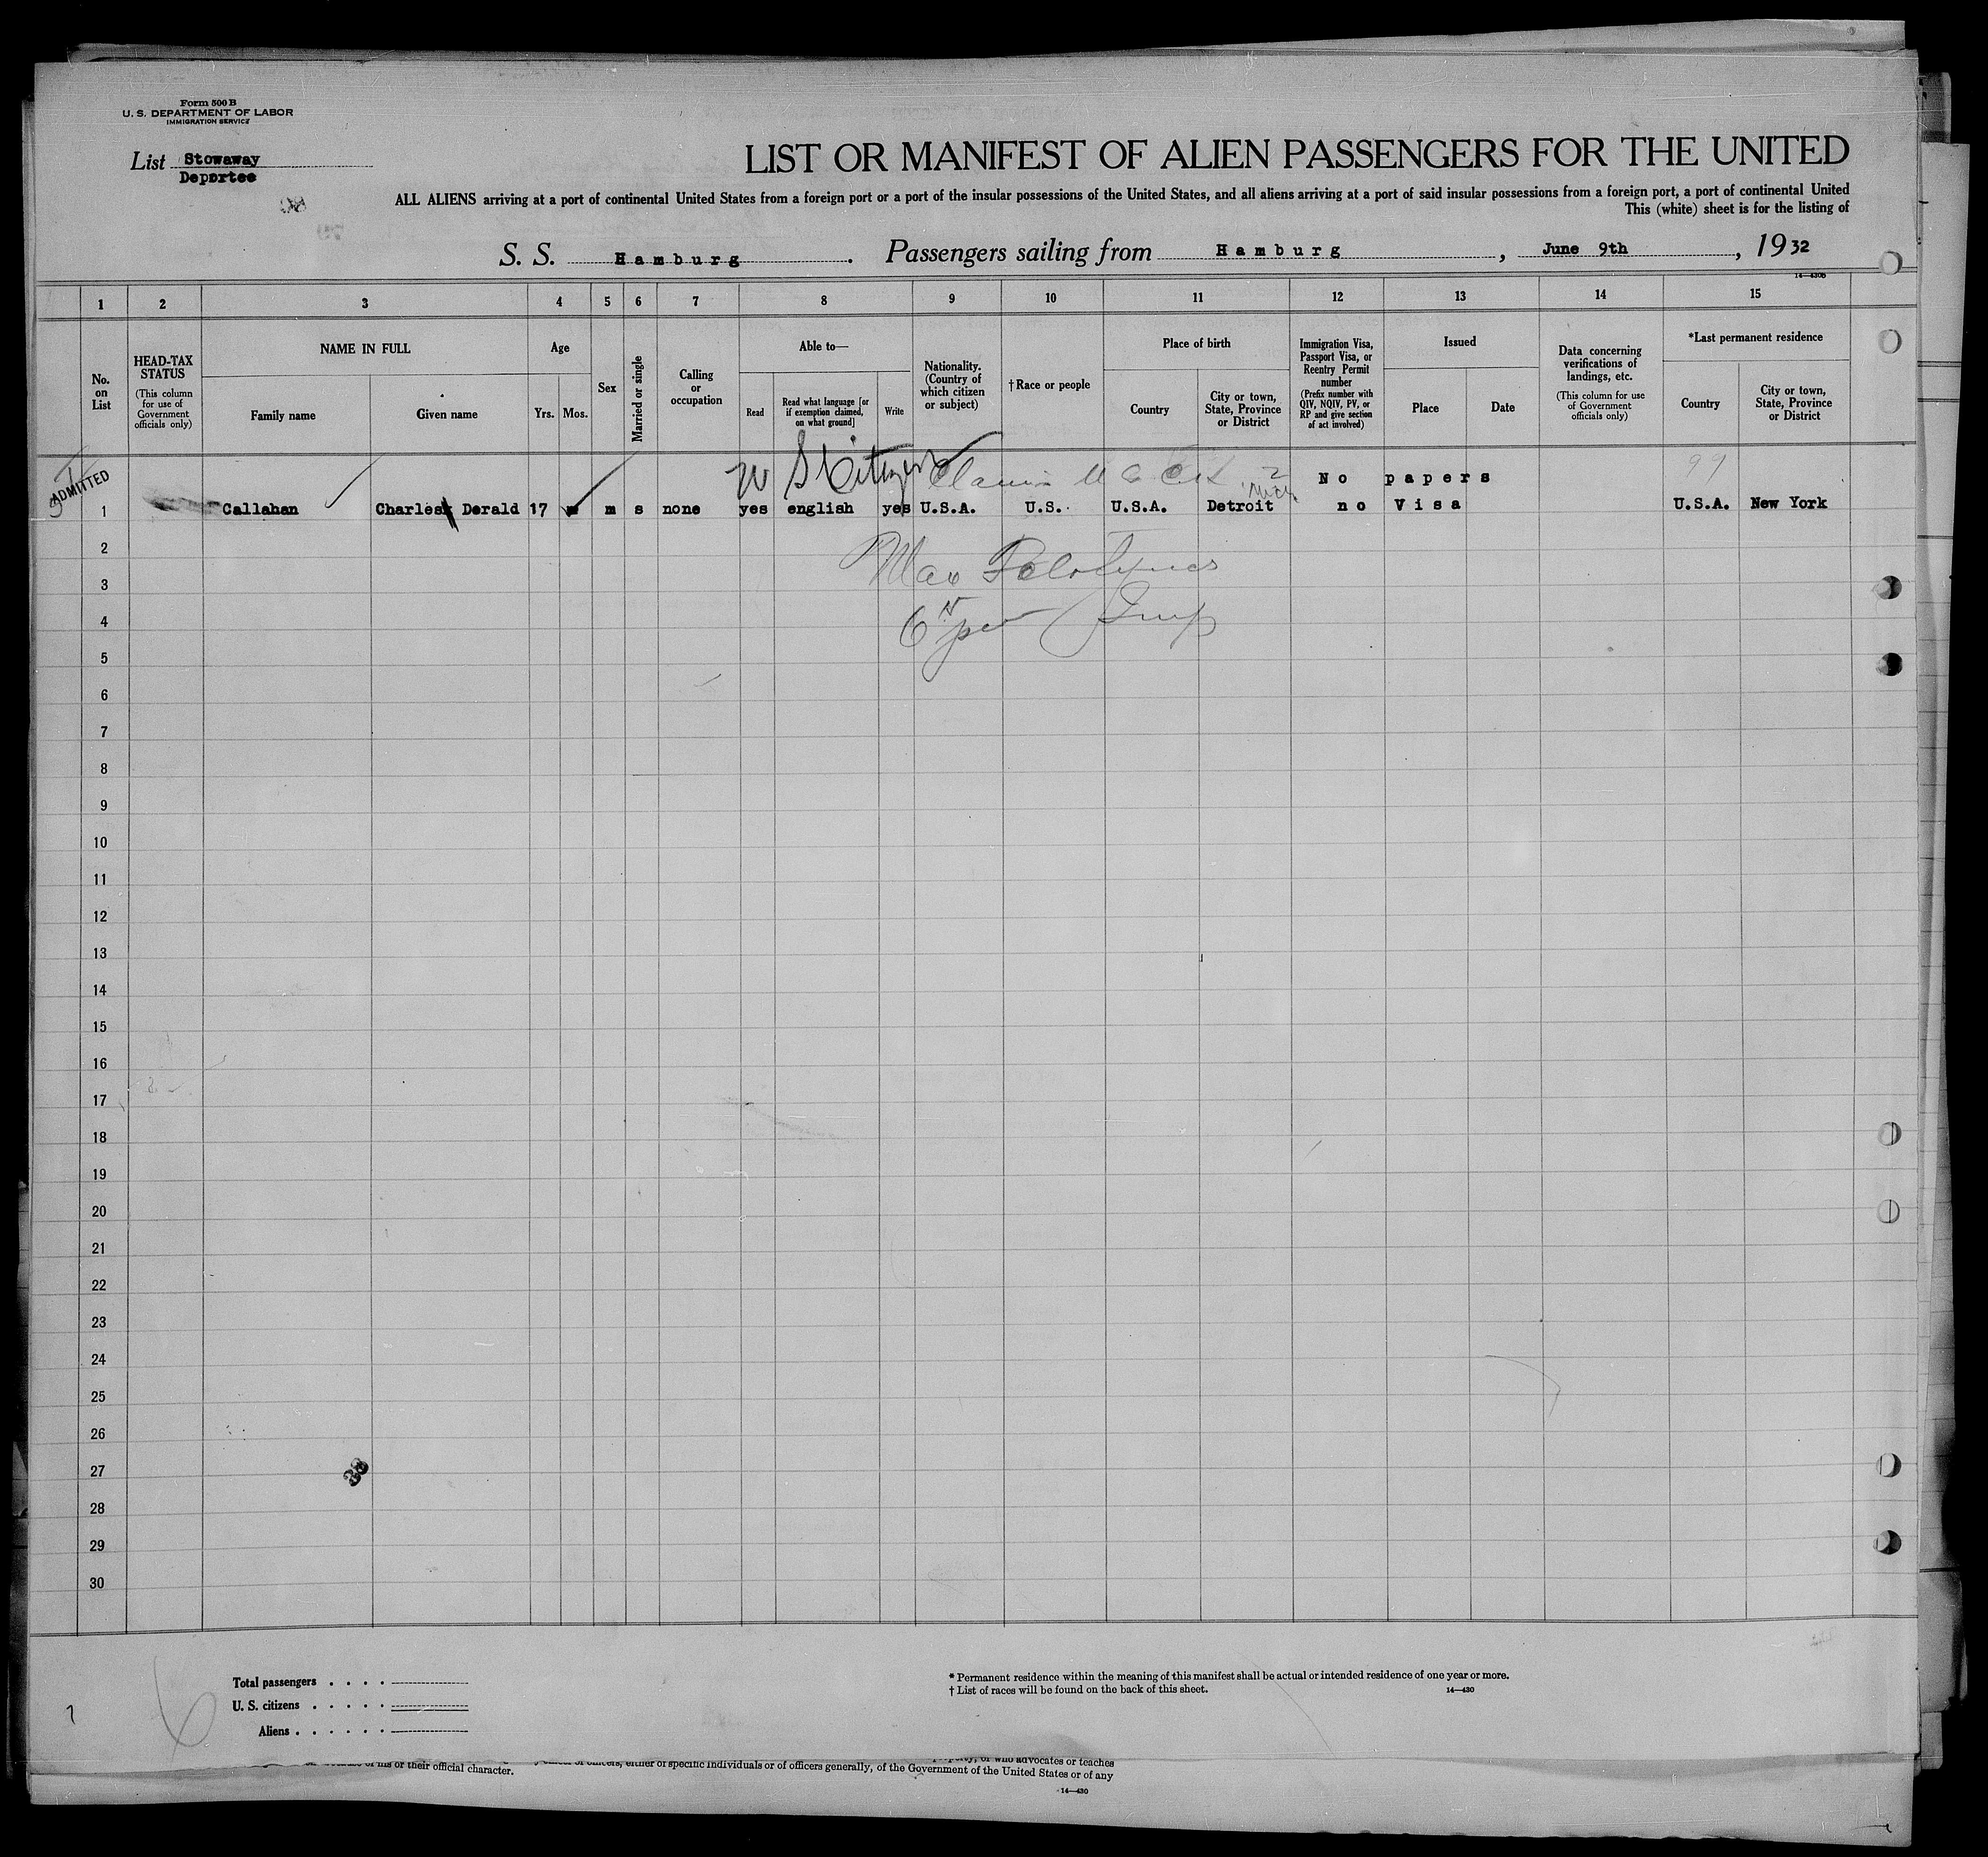 Form 500 B
U. S. DEPARTMENT OF LABOR
IMMIGRATION SERVICE
List Stowaway
Deportee
LIST OR MANIFEST OF ALIEN PASSENGERS FOR THE UNITED
ALL ALIENS arriving at a port of continental United States from a foreign port or a port of the insular possessions of the United States, and all aliens arriving at a port of said insular possessions from a foreign port, a port of continental United
This (white) sheet is for the listing of
S. S. Hamburg. Passengers sailing from Hamburg, June 9th, 1932
14—430B
1 2 3 4 5 6 7 8 9 10 11 12 13 14 15
No. on List
HEAD-TAX STATUS
(This column for use of Government officials only)
NAME IN FULL
Family name
Given name
Age
Yrs. Mos.
Sex
Married or single
Calling or occupation
Able to—
Read
Read what language [or if exemption claimed, on what ground]
Write
Nationality. (Country of which citizen or subject)
†Race or people
Place of birth
Country
City or town, State, Province or District
Immigration Visa, Passport Visa, or Reentry Permit number
(Prefix number with QIV, NQIV, PV, or RP and give section of act involved)
Issued
Place
Date
Data concerning verifications of landings, etc.
(This column for use of Government officials only)
*Last permanent residence
Country
City or town, State, Province or District
ADMITTED
U S Citizen Claims U S Cit
Mich.
99
No papers
1 Callahan Charles Derald 17 m s none yes english yes U.S.A. U.S. U.S.A. Detroit no Visa U.S.A. New York
2
Max
3
4
5
6
7
8
9
10
11
12
13
14
15
16
17
18
19
20
21
22
23
24
25
26
27
38
28
29
30
Total passengers . . . .
U. S. citizens . . . . .
Aliens . . . . . .
* Permanent residence within the meaning of this manifest shall be actual or intended residence of one year or more.
† List of races will be found on the back of this sheet.
14—430
either of specific individuals or of officers generally, of the Government of the United States or of any
or who advocates or teaches
his or their official character.
14—430